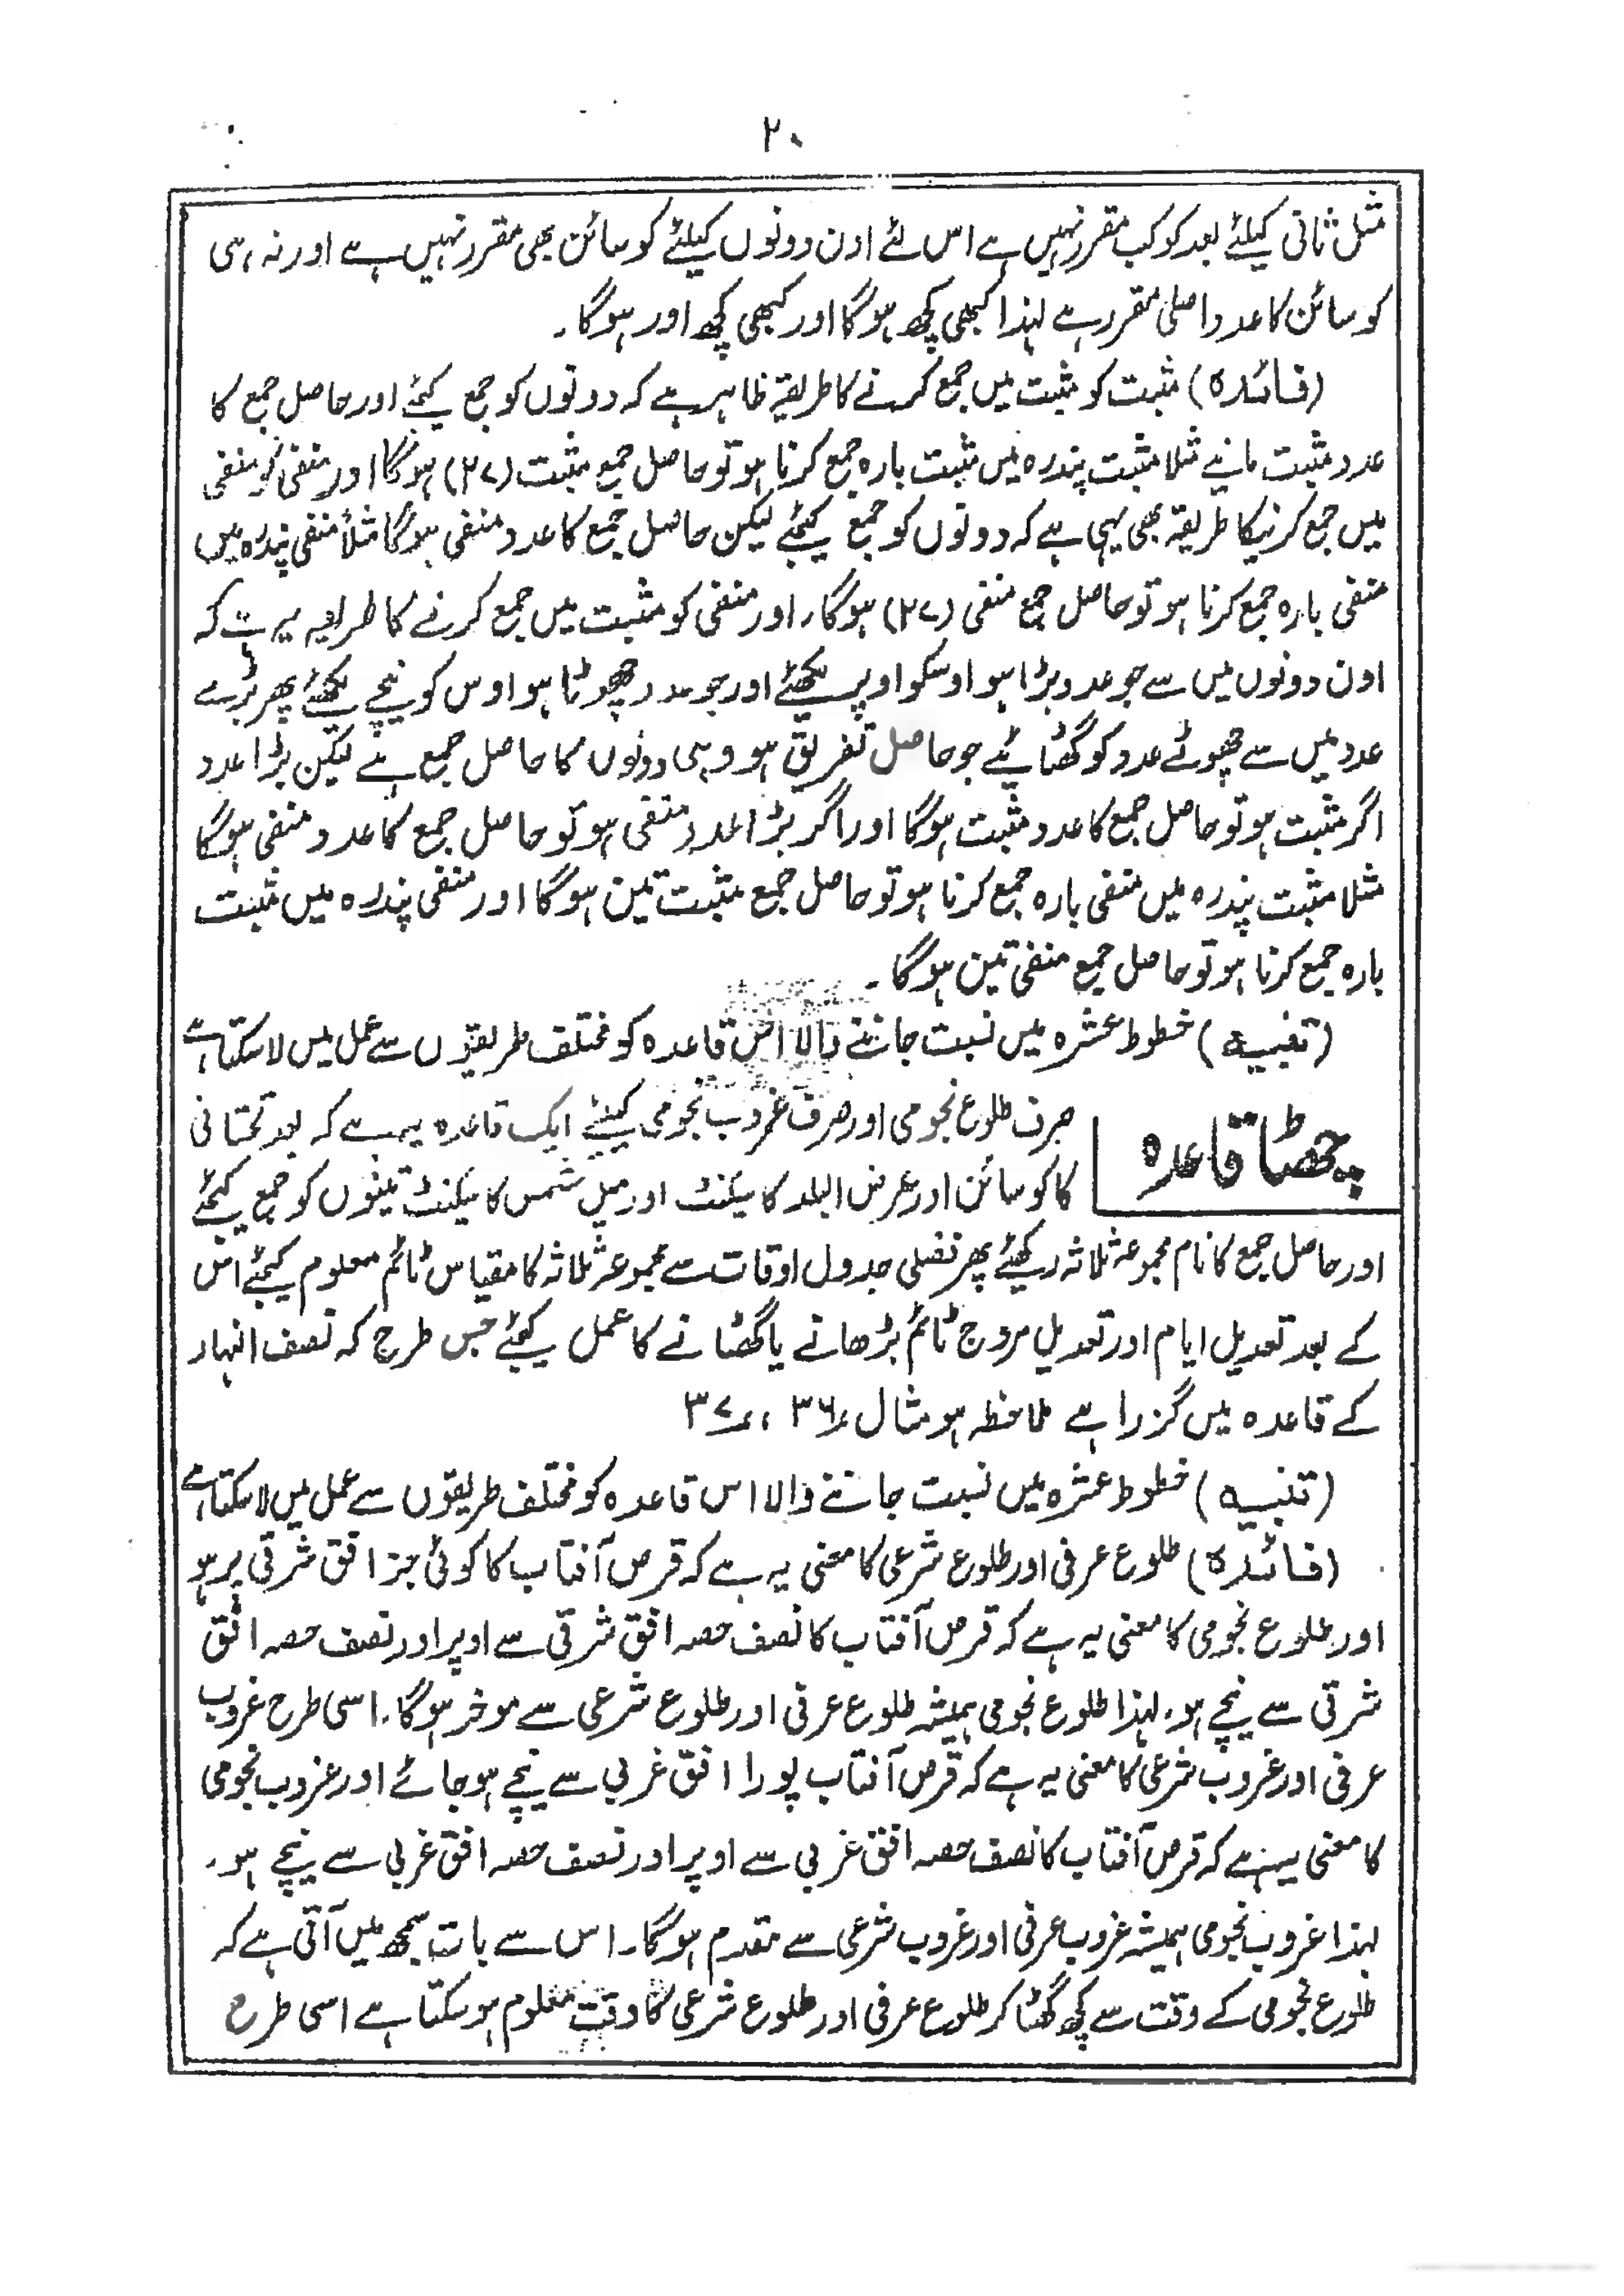 ۲۰
مثل ثانی کیلئے بعد کوکب مقرر نہیں ہے اس لئے اون دونوں کیلئے کوسائن بھی مقرر نہیں ہے اور نہ ہی
کوسائن کا عدد اصلی مقرر ہے لہذا کبھی کچھ ہوگا اور کبھی کچھ اور ہوگا۔
(فائدہ) مثبت کو مثبت میں جمع کرنے کا طریقہ ظاہر ہے کہ دونوں کو جمع کیجئے اور حاصل جمع کا
عدد مثبت مانیے مثلا مثبت پندرہ میں مثبت بارہ جمع کرنا ہو تو حاصل جمع مثبت (۲۷) ہوگا اور منفی کو منفی
میں جمع کرنیکا طریقہ بھی یہی ہے کہ دونوں کو جمع کیجئے لیکن حاصل جمع کا عدد منفی ہوگا مثلاً منفی پندرہ میں
منفی بارہ جمع کرنا ہو تو حاصل جمع منفی (۲۷) ہوگا، اور منفی کو مثبت میں جمع کرنے کا طریقہ یہ ہے کہ
اون دونوں میں سے جو عدد بڑا ہو اوسکو اوپر لکھئے اور جو عدد چھوٹا ہو اوس کو نیچے لکھئے پھر بڑے
عدد میں سے چھوٹے عدد کو گھٹائیے جو حاصل تفریق ہو وہی دونوں کا حاصل جمع ہے لیکن بڑا عدد
اگر مثبت ہو تو حاصل جمع کا عدد مثبت ہوگا اور اگر بڑا عدد منفی ہو تو حاصل جمع کا عدد منفی ہوگا
مثلا مثبت پندرہ میں منفی بارہ جمع کرنا ہو تو حاصل جمع مثبت تین ہوگا اور منفی پندرہ میں مثبت
بارہ جمع کرنا ہو تو حاصل جمع منفی تین ہوگا۔
(تنبیہ) خطوط عشرہ میں نسبت جاننے والا اس قاعدہ کو مختلف طریقوں سے عمل میں لا سکتا ہے
چھٹا قاعدہ
صرف طلوع نجومی اور صرف غروب نجومی کیلئے ایک قاعدہ یہ ہے کہ بعد تحتانی
کا کوسائن اور عرض البلد کا سیکنٹ اور میل شمس کا سیکنٹ تینوں کو جمع کیجئے
اور حاصل جمع کا نام مجموعہ ثلاثہ رکھئے پھر نفضلی جدول اوقات سے مجموعہ ثلاثہ کا مقیاس ٹائم معلوم کیجئے اس
کے بعد تعدیل ایام اور تعدیل مروج ٹائم بڑھانے یا گھٹانے کا عمل کیجئے جس طرح کہ نصف النہار
کے قاعدہ میں گزرا ہے ملاحظہ ہو مثال ۳۶، ۳۷
(تنبیہ) خطوط عشرہ میں نسبت جاننے والا اس قاعدہ کو مختلف طریقوں سے عمل میں لا سکتا ہے
(فائدہ) طلوع عرفی اور طلوع شرعی کا معنی یہ ہے کہ قرص آفتاب کا کوئی جز افق شرقی پر ہو
اور طلوع نجومی کا معنی یہ ہے کہ قرص آفتاب کا نصف حصہ افق شرقی سے اوپر اور نصف حصہ افق
شرقی سے نیچے ہو، لہذا طلوع نجومی ہمیشہ طلوع عرفی اور طلوع شرعی سے موخر ہوگا، اسی طرح غروب
عرفی اور غروب شرعی کا معنی یہ ہے کہ قرص آفتاب پورا افق غربی سے نیچے ہو جائے اور غروب نجومی
کا معنی یہ ہے کہ قرص آفتاب کا نصف حصہ افق غربی سے اوپر اور نصف حصہ افق غربی سے نیچے ہو،
لہذا غروب نجومی ہمیشہ غروب عرفی اور غروب شرعی سے مقدم ہوگا۔ اس سے بات سمجھ میں آتی ہے کہ
طلوع نجومی کے وقت سے کچھ گھٹا کر طلوع عرفی اور طلوع شرعی کا وقت معلوم ہو سکتا ہے اسی طرح